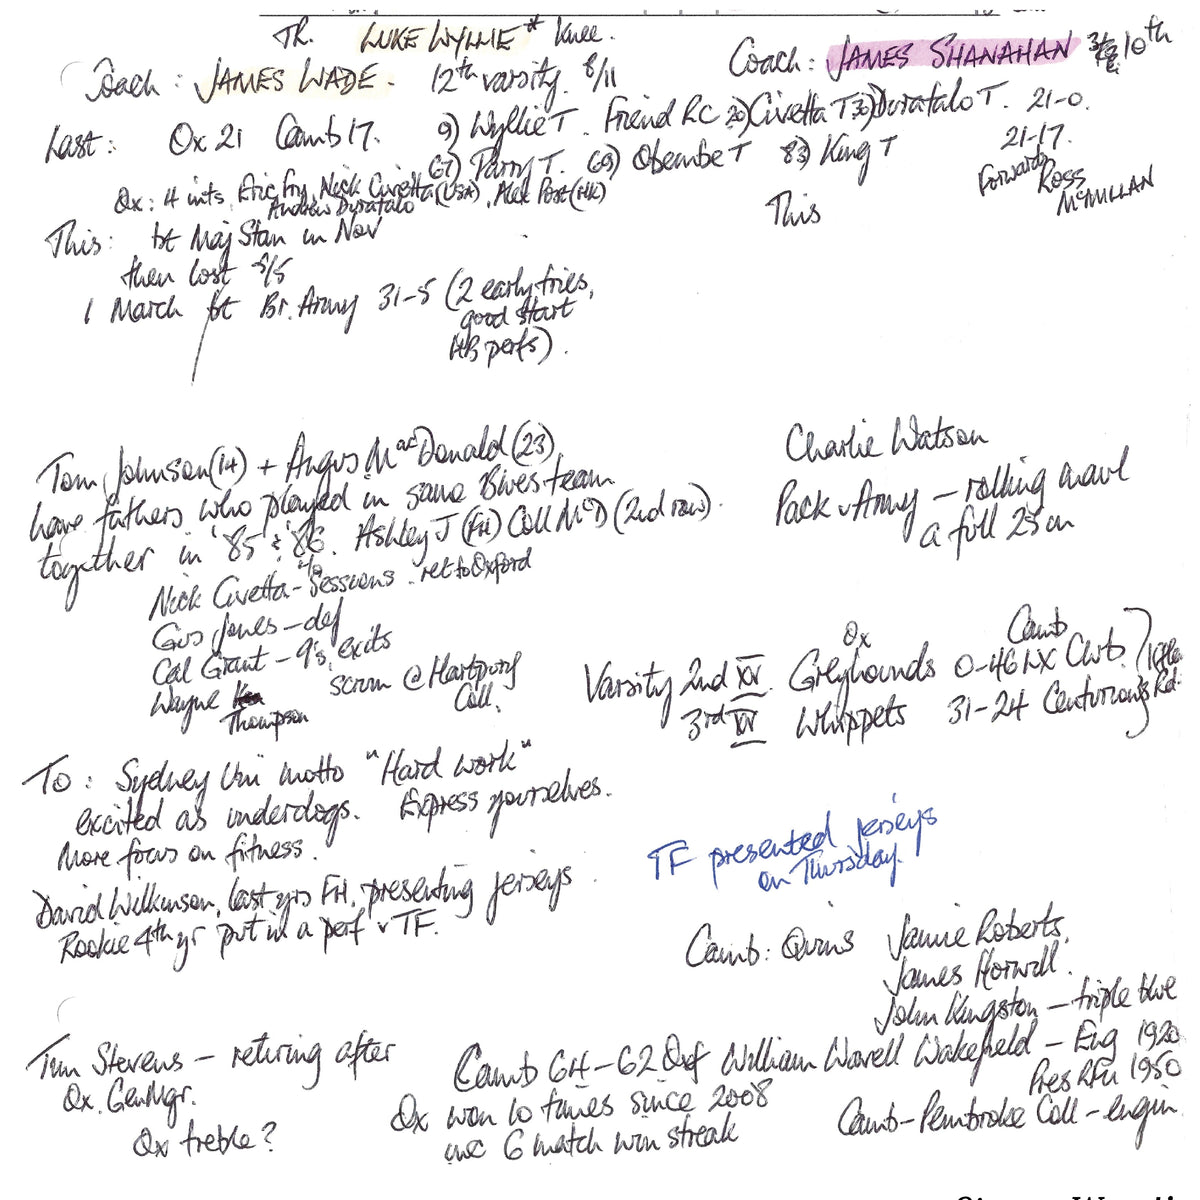 TR. LUKE WYLLIE* Knee.
Coach: JAMES WADE. 12th varsity. 8/11
Coach: JAMES SHANAHAN 10th
Last: Ox 21 Camb 17. 9) Wyllie T. Friend RC 20) Civetta T 30) Duratalo T. 21-0.
67) Parry T. 69) Obembe T 83) King T 21-17.
Ox: 4 ints, Eric Fry, Nick Civetta (USA), Alex Post (HK)
Andrew Duratalo
Forward Ross McMILLAN
This: bt Maj Stan in Nov
This
then lost 5/5
1 March bt Br. Army 31-5 (2 early tries,
good start
HB perfs).
Tom Johnson (14) + Angus MacDonald (23)
have fathers who played in same Blues team
together in '85 & '86. Ashley J (FH) Coll McD (2nd row).
Charlie Watson
Pack v Army - rolling maul
a full 25m
Nick Civetta - Sessions. ret to Oxford
Gus Jones - def
Cal Grant - 9's, exits
Wayne Thompson scrum @ Hartpury Coll.
Ox Camb
Varsity 2nd XV Greyhounds 0-46 LX Club.
3rd XV Whippets 31-24 Centurions
To: Sydney Uni motto "Hard work"
excited as underdogs. Express yourselves.
More focus on fitness.
TF presented jerseys
on Thursday.
David Wilkinson, last yrs FH, presenting jerseys
Rookie 4th yr put in a perf v TF.
Camb: Quins Jamie Roberts,
James Horwill.
John Kingston - triple blue
Tim Stevens - retiring after
Ox. Gen Mgr.
Ox treble?
Camb 64-62 Oxf William Wavell Wakefield - Eng 1920
Pres RFU 1950
Ox won 10 times since 2008
inc 6 match win streak
Camb-Pembroke Coll - engin.